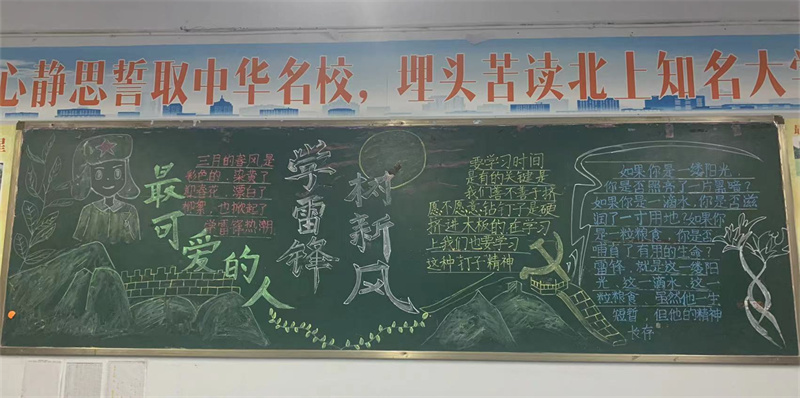 心静思誓取中华名校，埋头苦读北上知名大学
三月的春风是
彩色的，染黄了
迎春花，漂白了
柳絮，也掀起了
学雷锋热潮
最可爱的人
学雷锋
树新风
要学习时间
是有的关键是
我们善不善于挤
愿不愿意钻钉子是硬
挤进木板的在学习
上我们也要学习
这种钉子精神
如果你是一缕阳光，
你是否照亮了一片黑暗？
如果你是一滴水，你是否滋
润了一寸用地？如果你
是一粒粮食，你是否
哺育了有用的生命？
雷锋，就是这一缕阳
光，这一滴水，这一
粒粮食，虽然他一生
短暂，但他的精神
长存